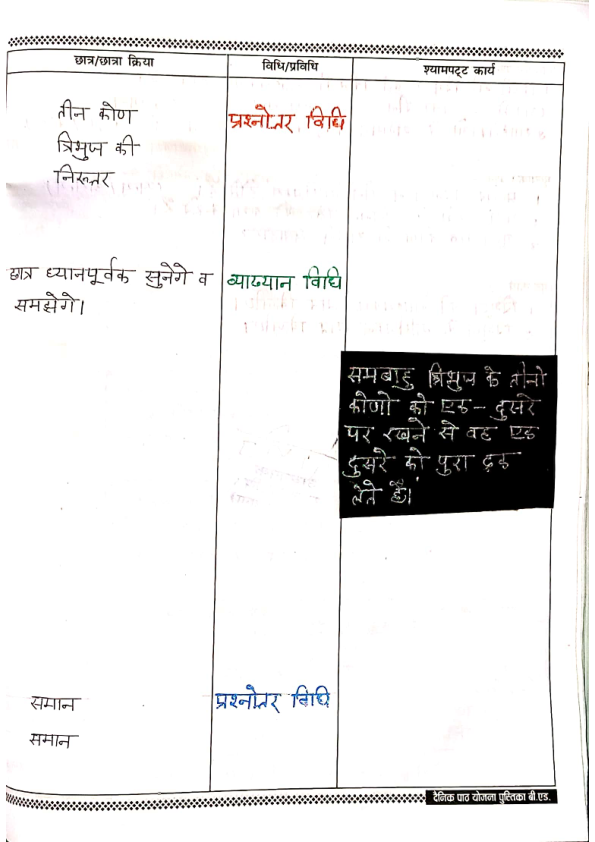 छात्र/छात्रा क्रिया
विधि/प्रविधि
श्यामपट्ट कार्य
तीन कोण
त्रिभुज की
निरूत्तर
प्रश्नोतर विधि
छात्र ध्यानपूर्वक सुनेगे व
समझेगे।
व्याख्यान विधि
समबाहु त्रिभुज के तीनो
कोणो को एक - दुसरे
पर रखने से वह एक
दुसरे को पुरा ढ़क
लेते है।
समान
समान
प्रश्नोतर विधि
दैनिक पाठ योजना पुस्तिका बी.एड.